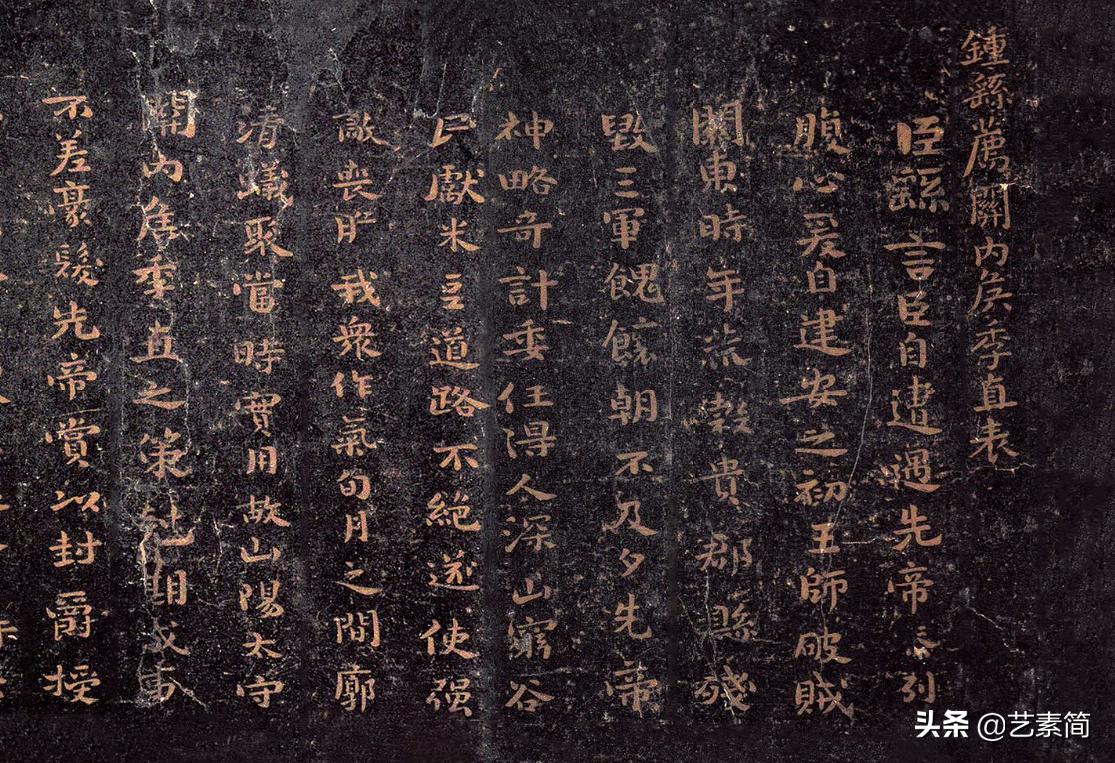 鍾繇薦關内侯季直表
臣繇言臣自遭遇先帝忝列
腹心爰自建安之初王師破賊
關東時年荒穀貴郡縣殘
毀三軍餽饟朝不及夕先帝
神略奇計委任得人深山窮谷
民獻米豆道路不絕遂使强
敵喪膽我衆作氣旬月之間廓
清蟻聚當時實用故山陽太守
關内侯季直之策剋期成事
不差豪髮先帝賞以封爵授
头条 @艺素简